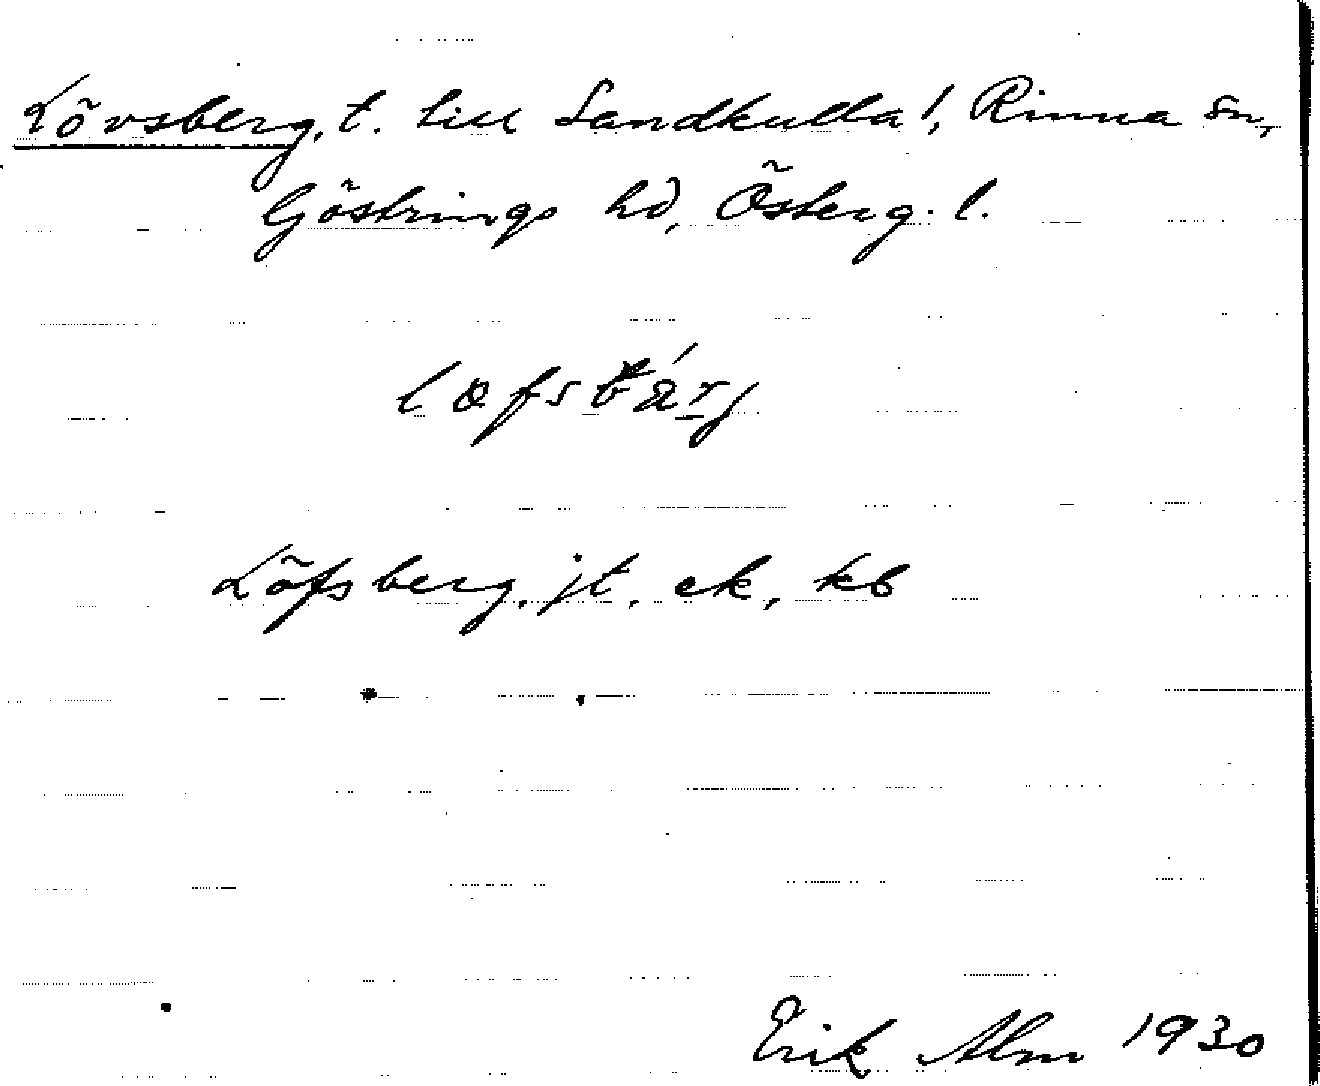 Lövsberg, t. till Sandkulla 1, Rinna sn,
Göstrings hd, Österg. l.
Löfsberg, jt, ek, kb
Erik Alm 1930